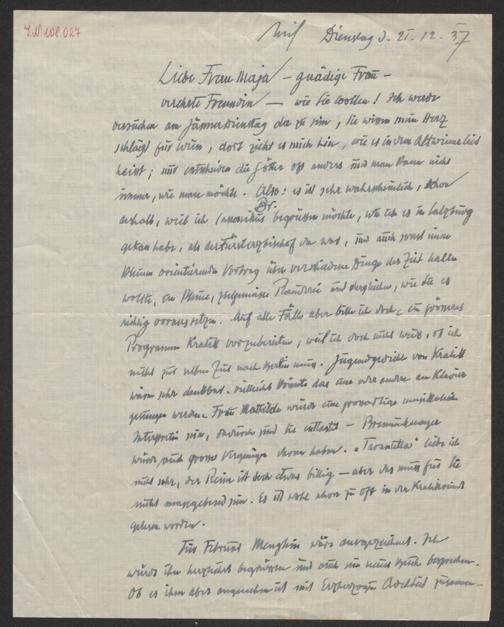 Dienstag d. 21. 12. 37
Liebe Frau Maja – gnädige Frau –
verehrte Freundin – wie Sie wollen! Ich werde
versuchen am Jännerdienstag da zu sein, Sie wissen mein Herz
schlägt für Wien, dort zieht es mich hin, wie es in dem Altwienerlied
heisst; nur entscheiden die Götter oft anders und man kann nicht
immer, wie man möchte. Also: es ist sehr wahrscheinlich, schon
deshalb, weil ich Dr. begrüssen möchte, wie ich es in Salzburg
getan habe, als der Fürsterzbischof da war, und auch sonst einen
kleinen orientierenden Vortrag über verschiedene Dinge der Zeit halten
wollte, eine kleine, und dergleichen, wie Sie es
richtig voraussetzen. Auf alle Fälle aber bitte ich doch, ein grösseres
Programm Kralik vorzubereiten, weil ich doch nicht weiss, ob ich
nicht zur selben Zeit nach Berlin muss. Jugendgedichte von Kralik
wären sehr dankbar. Vielleicht könnte das eine oder andere am Klavier
gesungen werden. Frau Mathilde würde eine grossartige musikalische
Interpretin sein, – Bemerkungen
würde auch grosses Vergnügen daran haben. „Tarantella" liebe ich
nicht sehr, der Reim ist doch etwas billig – aber das muss für Sie
nicht massgebend sein. Es ist wohl schon zu oft in der Kralikrunde
gelesen worden.
Für Februar Menghin wäre ausgezeichnet. Ich
würde ihn herzlichst begrüssen und auch sein neues Buch besprechen.
Ob es ihm aber angenehm ist mit Erzherzogin Adelheid zusammen-